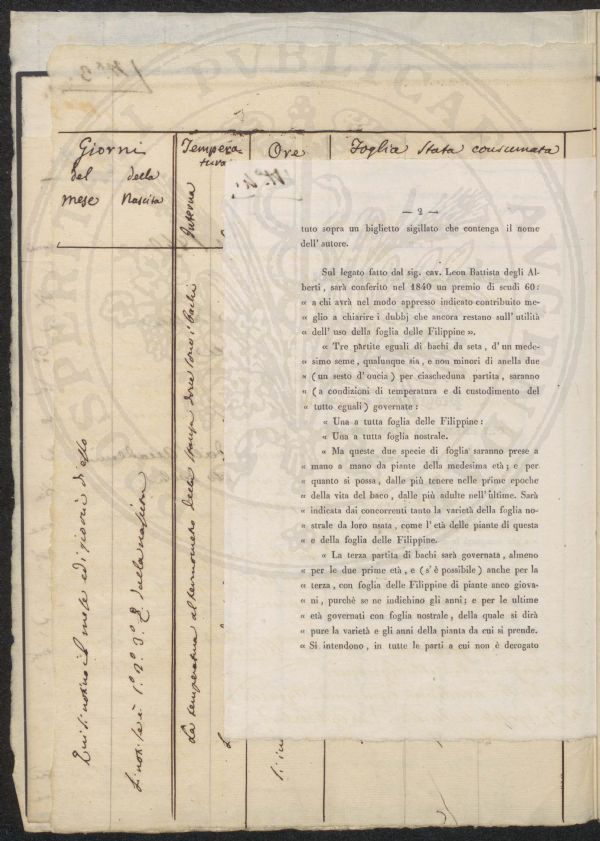 Giorni
del della
mese Nascita
Tempera-
tura
Interna
Ore
Foglia Stata consumata
Qui si notino il mese ed i giorni di esso
Si noti se è 1.º 2.º 3.º &. dalla nascita
La temperatura al termometro della stanza dove sono i bachi
— 2 —
tuto sopra un biglietto sigillato che contenga il nome
dell' autore.
Sul legato fatto dal sig. cav. Leon Battista degli Al-
berti, sarà conferito nel 1840 un premio di scudi 60:
« a chi avrà nel modo appresso indicato contribuito me-
« glio a chiarire i dubbj che ancora restano sull' utilità
« dell' uso della foglia delle Filippine ».
« Tre partite eguali di bachi da seta, d' un mede-
« simo seme, qualunque sia, e non minori di anella due
« (un sesto d'oncia) per ciascheduna partita, saranno
« (a condizioni di temperatura e di custodimento del
« tutto eguali) governate:
« Una a tutta foglia delle Filippine:
« Una a tutta foglia nostrale.
« Ma queste due specie di foglia saranno prese a
« mano a mano da piante della medesima età; e per
« quanto si possa, dalle più tenere nelle prime epoche
« della vita del baco, dalle più adulte nell'ultime. Sarà
« indicata dai concorrenti tanto la varietà della foglia no-
« strale da loro usata, come l' età delle piante di questa
« e della foglia delle Filippine.
« La terza partita di bachi sarà governata, almeno
« per le due prime età, e (s' è possibile) anche per la
« terza, con foglie delle Filippine di piante anco giova-
« ni, purchè se ne indichino gli anni; e per le ultime
« età governati con foglie nostrale, della quale si dirà
« pure la varietà e gli anni della pianta da cui si prende.
« Si intendono, in tutte le parti a cui non è derogato